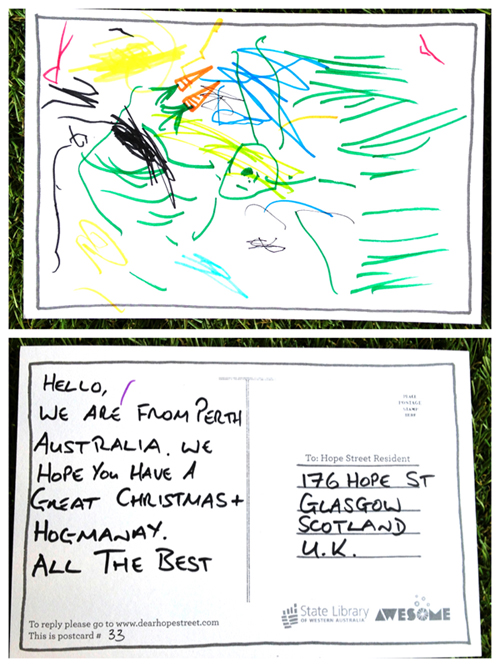 HELLO,
WE ARE FROM PERTH
AUSTRALIA. WE
HOPE YOU HAVE A
GREAT CHRISTMAS +
HOGMANAY.
ALL THE BEST
To reply please go to www.dearhopestreet.com
This is postcard # 33
PLACE
POSTAGE
STAMP
HERE
To: Hope Street Resident
176 HOPE ST
GLASGOW
SCOTLAND
U.K.
State Library
OF WESTERN AUSTRALIA
AWESOME